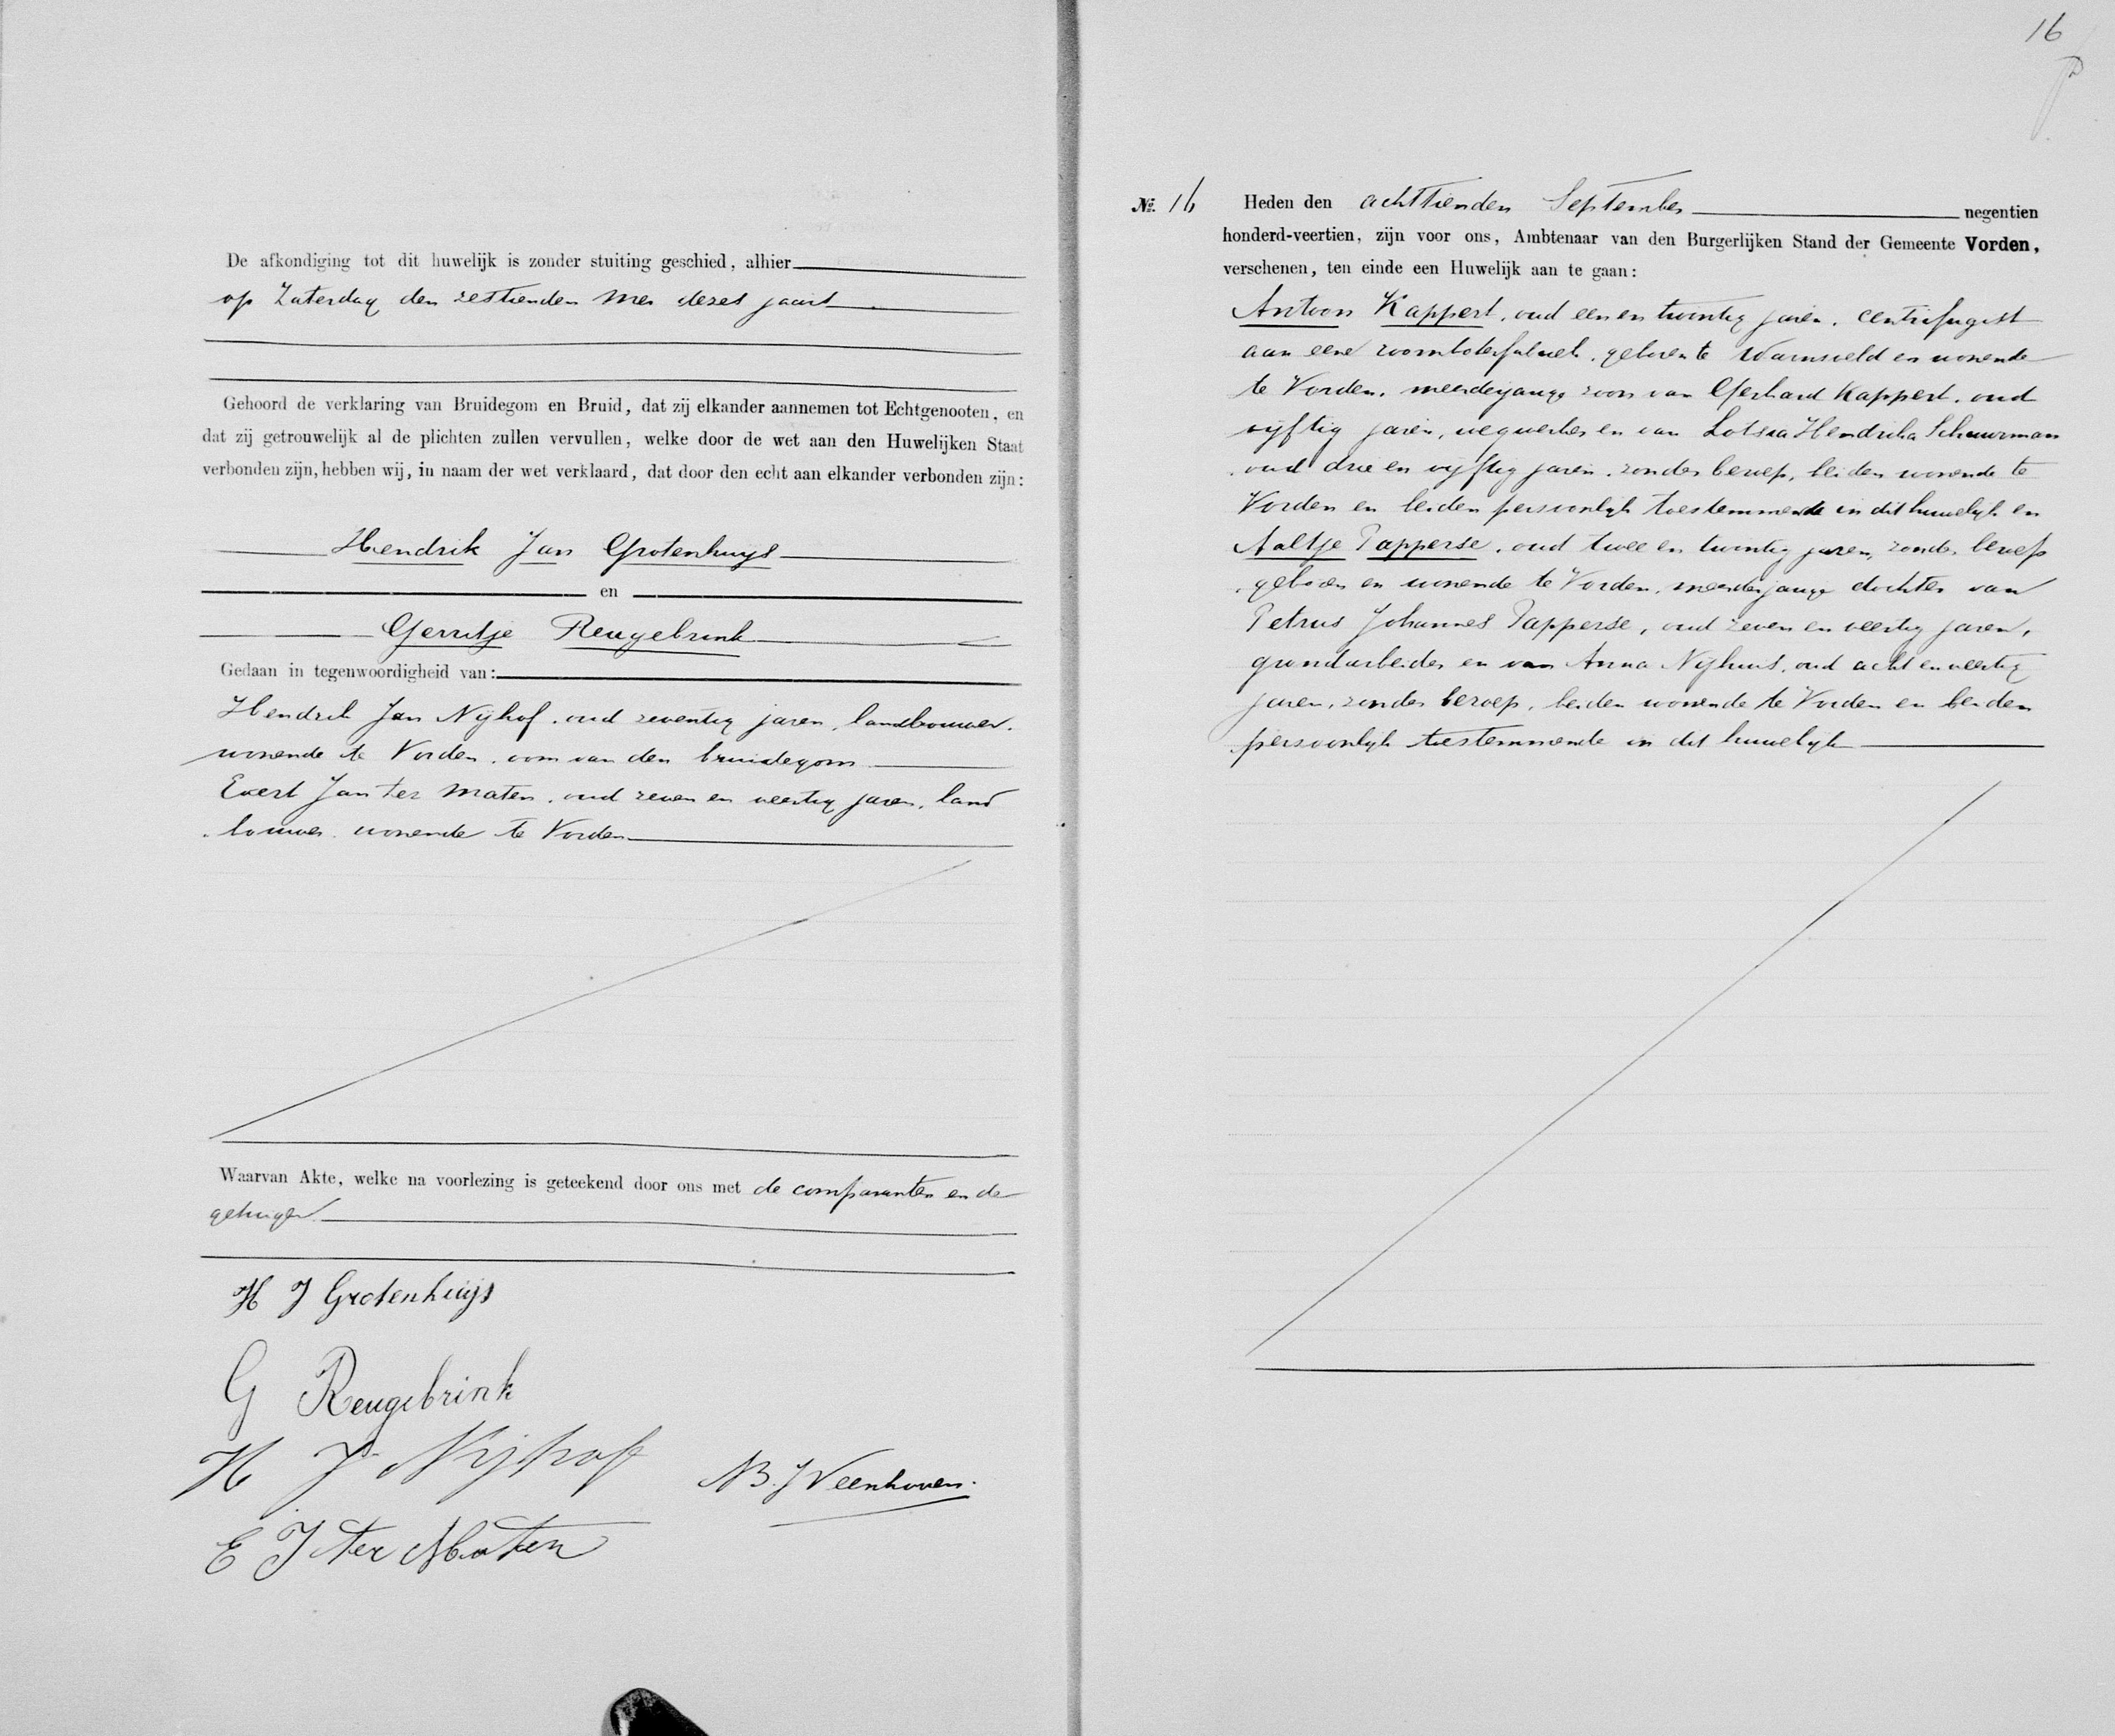 De afkondiging tot dit huwelijk is zonder stuiting geschied, alhier
op Zaterdag den zestienden Mei dezes jaars
Gehoord de verklaring van Bruidegom en Bruid, dat zij elkander aannemen tot Echtgenooten, en
dat zij getrouwelijk al de plichten zullen vervullen, welke door de wet aan den Huwelijken Staat
verbonden zijn, hebben wij, in naam der wet verklaard, dat door den echt aan elkander verbonden zijn:
Hendrik Jan Grotenhuijs
en
Gerritje Reugebrink
Gedaan in tegenwoordigheid van:
Hendrik Jan Nijhof, oud zeventig jaren, landbouwer,
wonende te Vorden, oom van den bruidegom
Evert Jan ter Maten, oud zeven en veertig jaren, land
bouwer wonende te Vorden
Waarvan Akte, welke na voorlezing is geteekend door ons met de comparanten en de
getuigen
H J Grotenhuijs
G Reugebrink
H J Nijhoff
B. J Veenhoven.
E J ter Maten
16
No. 16 Heden den achttienden September negentien
honderd-veertien, zijn voor ons, Ambtenaar van den Burgerlijken Stand der Gemeente Vorden,
verschenen, ten einde een Huwelijk aan te gaan:
Antoon Kappert, oud een en twintig jaren, centrifugist
aan eene roomboterfabriek, geboren te Warnsveld en wonende
te Vorden, meerderjarige zoon van Gerhard Kappert, oud
vijftig jaren, wegwerker en van Hendrika Schuurman
oud drie en vijftig jaren, zonder beroep, beiden wonende te
Vorden en beiden persoonlijk toestemmende in dit huwelijk en
Aaltje Papperse, oud twee en twintig jaren, zonder beroep
geboren en wonende te Vorden, meerderjarige dochter van
Petrus Johannes Papperse, oud zeven en veertig jaren,
grondarbeider en van Anna Nijhuis, oud acht en veertig
jaren, zonder beroep, beiden wonende te Vorden en beiden
persoonlijk toestemmende in dit huwelijk